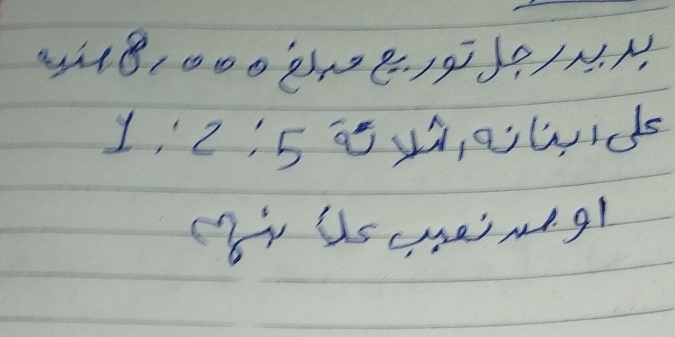 يريد رجل توزيع مبلغ 8,000 جنيه
على ابنائه الثلاثة 5 : 2 : 1
اوجد نصيب كلاً منهم